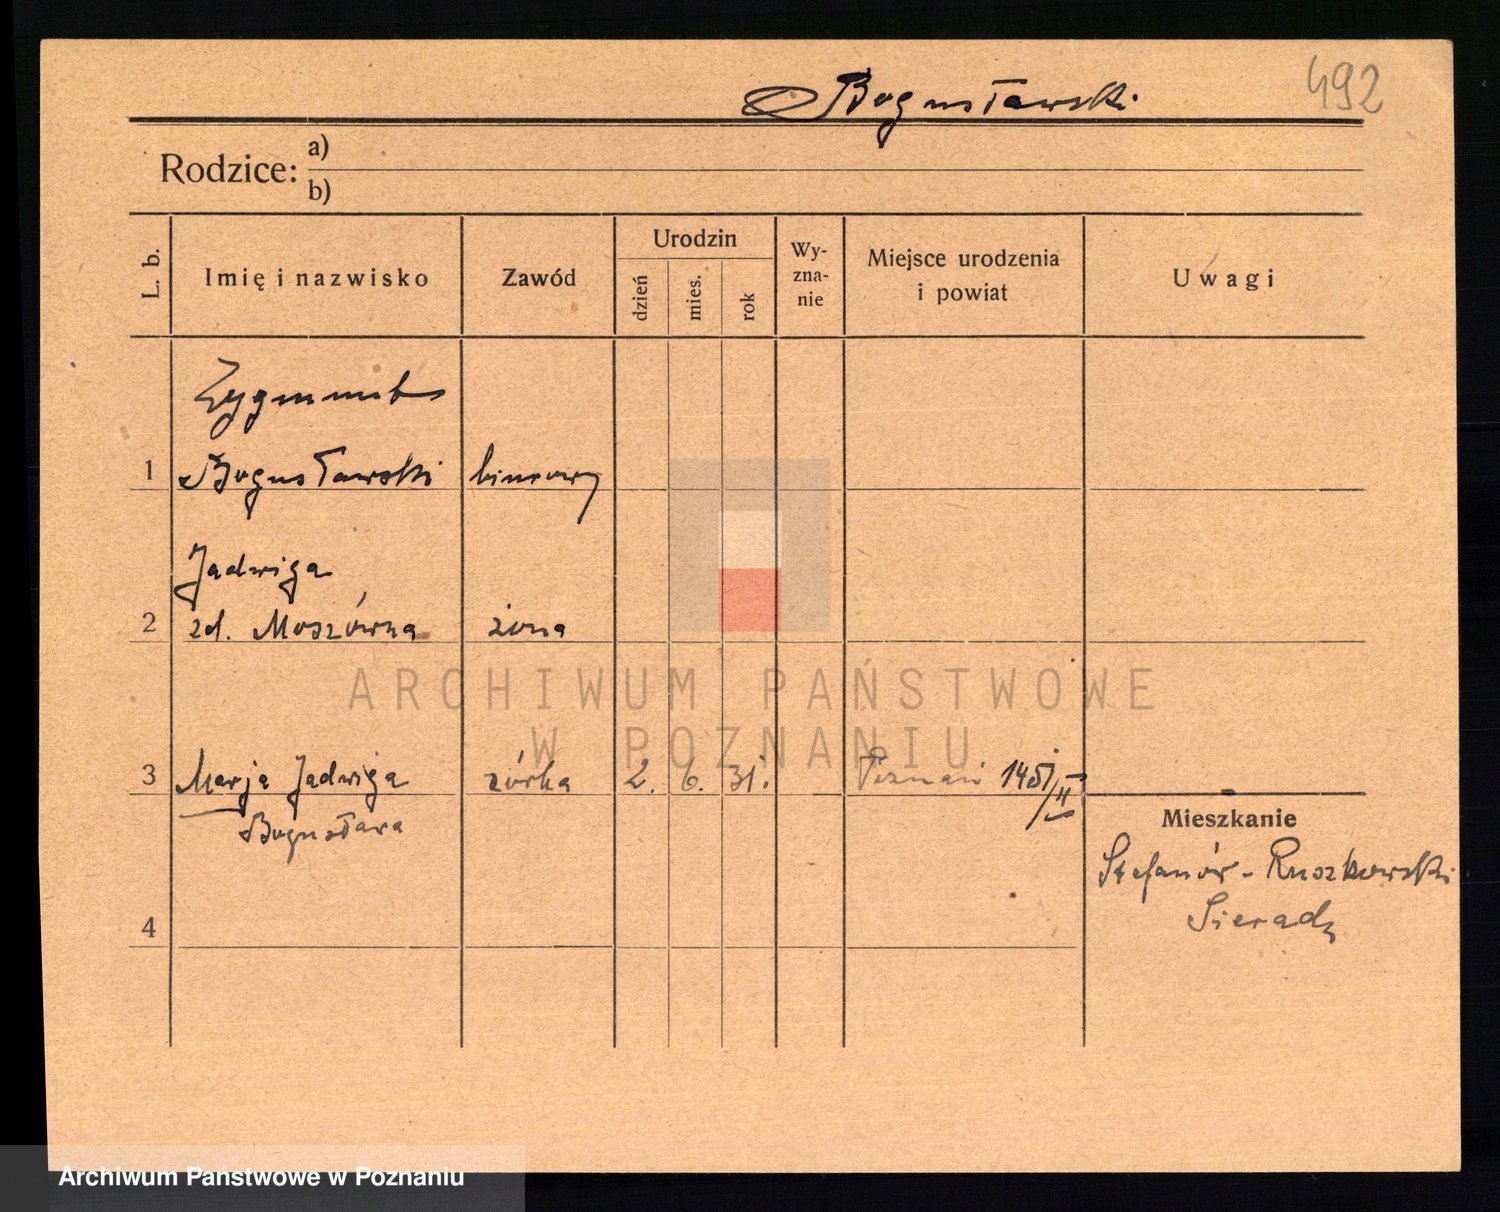 Bogusławski
492
Rodzice: a)
b)
L. b.
Imię i nazwisko
Zawód
Urodzin
dzień
mies.
rok
Wy-
zna-
nie
Miejsce urodzenia
i powiat
Uwagi
Zygmunt
1 Bogusławski biurowy
Jadwiga
2 zd. Moszówna żona
3 Marja Jadwiga córka 2. 6. 31. Poznań
Bogusława
Mieszkanie
Stefanów - Ruszkowski
Sieradz
4
ARCHIWUM PAŃSTWOWE
W POZNANIU
Archiwum Państwowe w Poznaniu